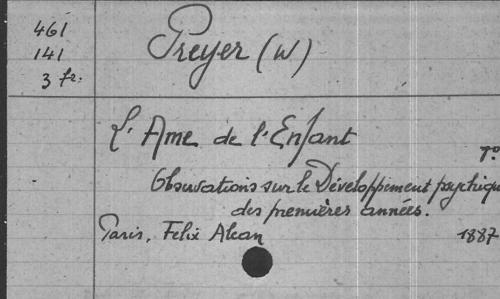 461
141
3 fr.
Preyer (W)
L'Ame de l'Enfant
Observations sur le Développement psychiqu
des premières années.
Paris, Felix Alcan 1887